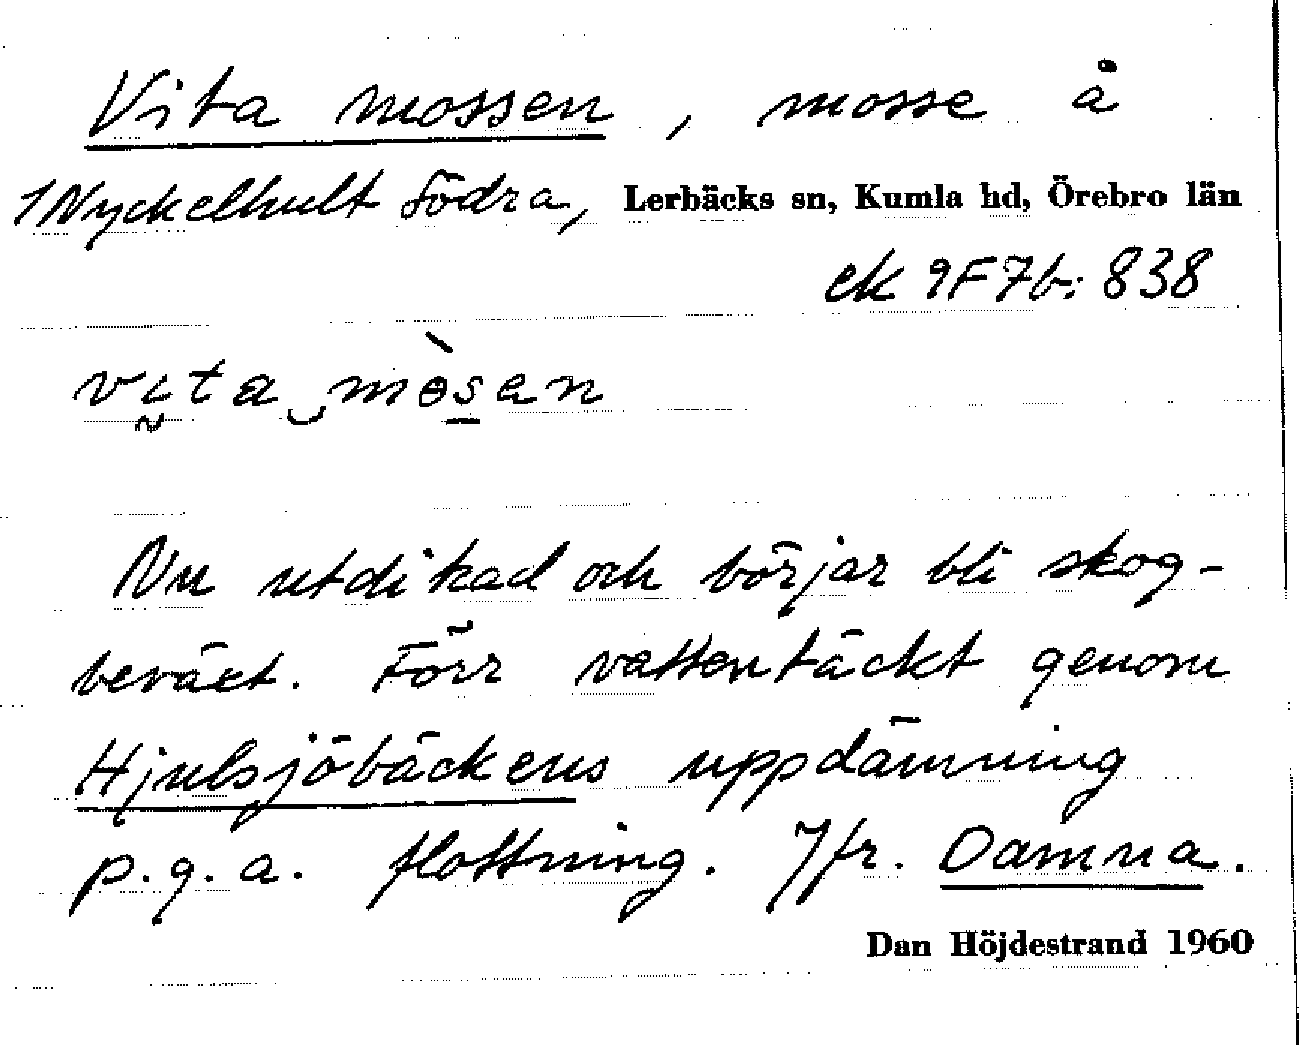 Vita mossen, mosse å
1 Nyckelhult Södra, Lerbäcks sn, Kumla hd, Örebro län
ek 9F7b: 838
vita mòsen
Nu utdikad och börjar bli skog-
beväxt. Förr vattentäckt genom
Hjulsjöbäckens uppdämning
p.g.a. flottning. Jfr. Damma.
Dan Höjdestrand 1960